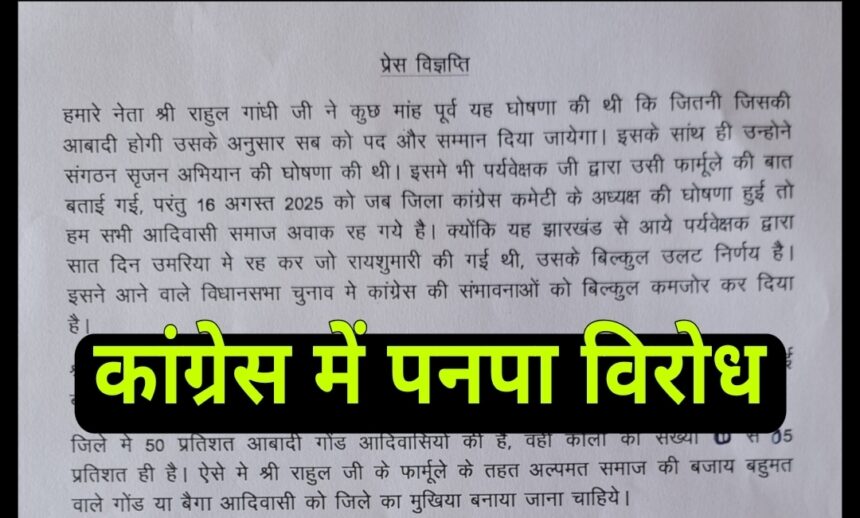 प्रेस विज्ञप्ति
हमारे नेता श्री राहुल गांधी जी ने कुछ मांह पूर्व यह घोषणा की थी कि जितनी जिसकी
आबादी होगी उसके अनुसार सब को पद और सम्मान दिया जायेगा। इसके सांथ ही उन्होने
संगठन सृजन अभियान की घोषणा की थी। इसमे भी पर्यवेक्षक जी द्वारा उसी फार्मूले की बात
बताई गई, परंतु 16 अगस्त 2025 को जब जिला कांग्रेस कमेटी के अध्यक्ष की घोषणा हुई तो
हम सभी आदिवासी समाज अवाक रह गये है। क्योंकि यह झारखंड से आये पर्यवेक्षक द्वारा
सात दिन उमरिया मे रह कर जो रायशुमारी की गई थी, उसके बिल्कुल उलट निर्णय है।
इसने आने वाले विधानसभा चुनाव मे कांग्रेस की संभावनाओं को बिल्कुल कमजोर कर दिया
है।
कांग्रेस में पनपा विरोध
जिले मे 50 प्रतिशत आबादी गोंड आदिवासियों की है, वहीं कोलों की संख्या से 05
प्रतिशत ही है। ऐसे मे श्री राहुल जी के फार्मूले के तहत अल्पमत समाज की बजाय बहुमत
वाले गोंड या बैगा आदिवासी को जिले का मुखिया बनाया जाना चाहिये।